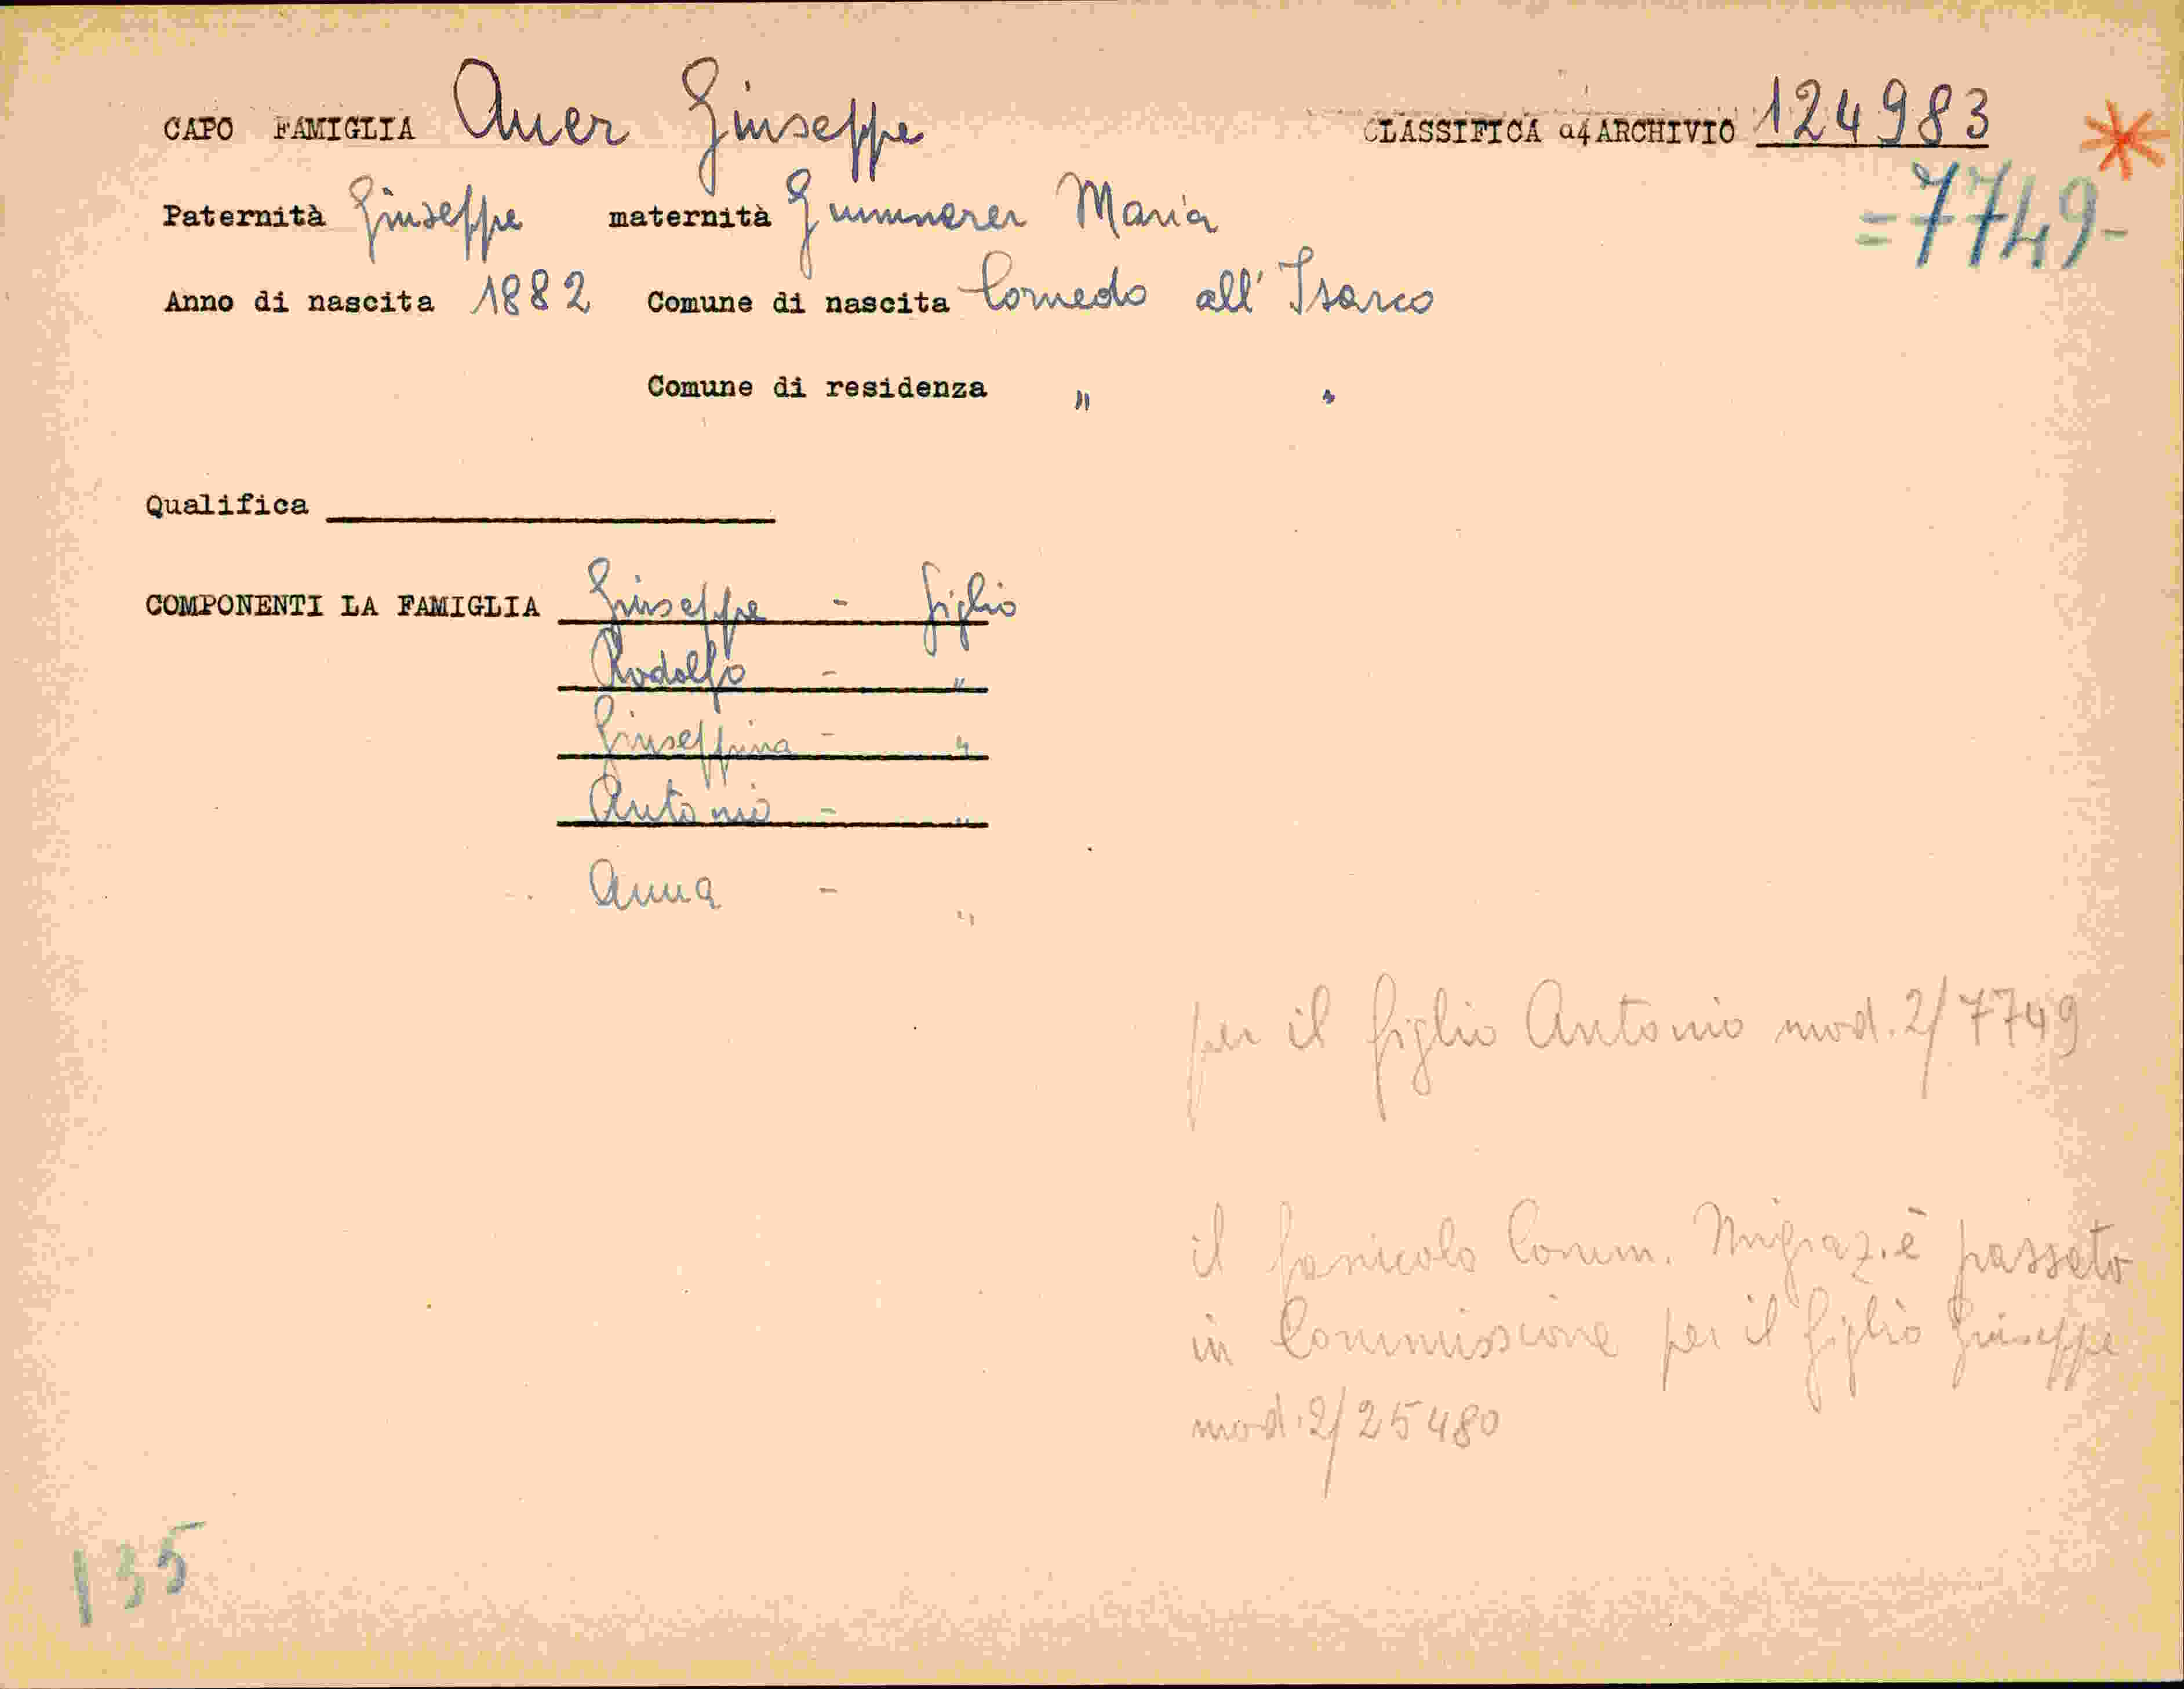 CAPO FAMIGLIA Auer Giuseppe CLASSIFICA a4 ARCHIVIO 124983
=7749-
Paternità Giuseppe maternità Gummerer Maria
Anno di nascita 1882 Comune di nascita Cornedo all' Isarco
Comune di residenza " "
Qualifica
COMPONENTI LA FAMIGLIA Giuseppe - figlio
Rodolfo - "
Giuseppina - "
Antonio - "
Anna - "
per il figlio Antonio mod. 2/7749
il fascicolo Comm. Migraz. è passato
in Commissione per il figlio Giuseppe
mod. 2/25480
135